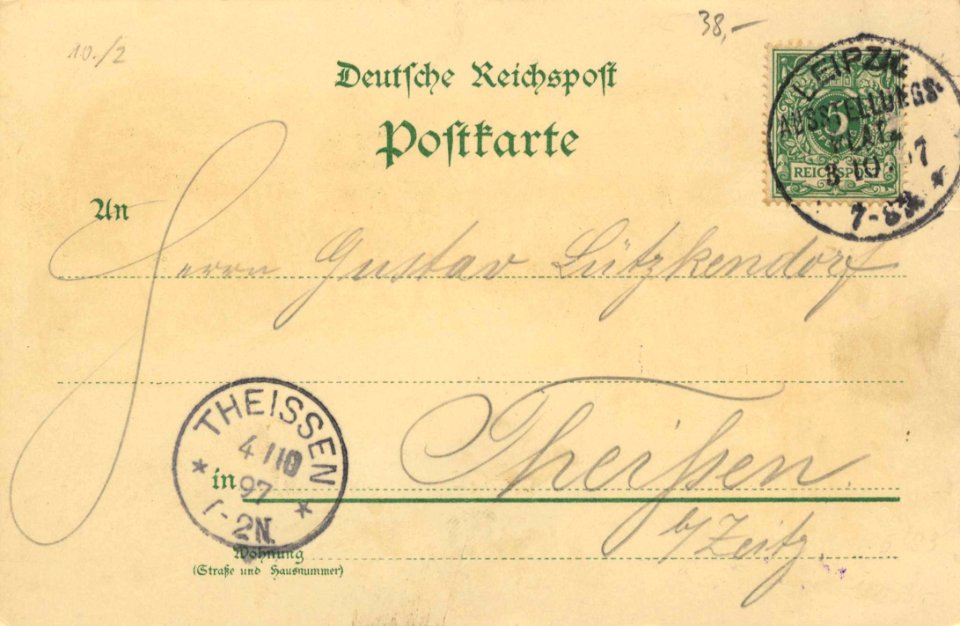 10./2
38,-
Deutsche Reichspost
Postkarte
5
REICHSPOST
LEIPZIG
AUSSTELLUNGS-
PLATZ
3 10 97
7-8N
An
Herrn Gustav Lützkendorf
THEISSEN
4 10
97
1-2N.
in Theißen
b/Zeitz.
Wohnung
(Straße und Hausnummer)